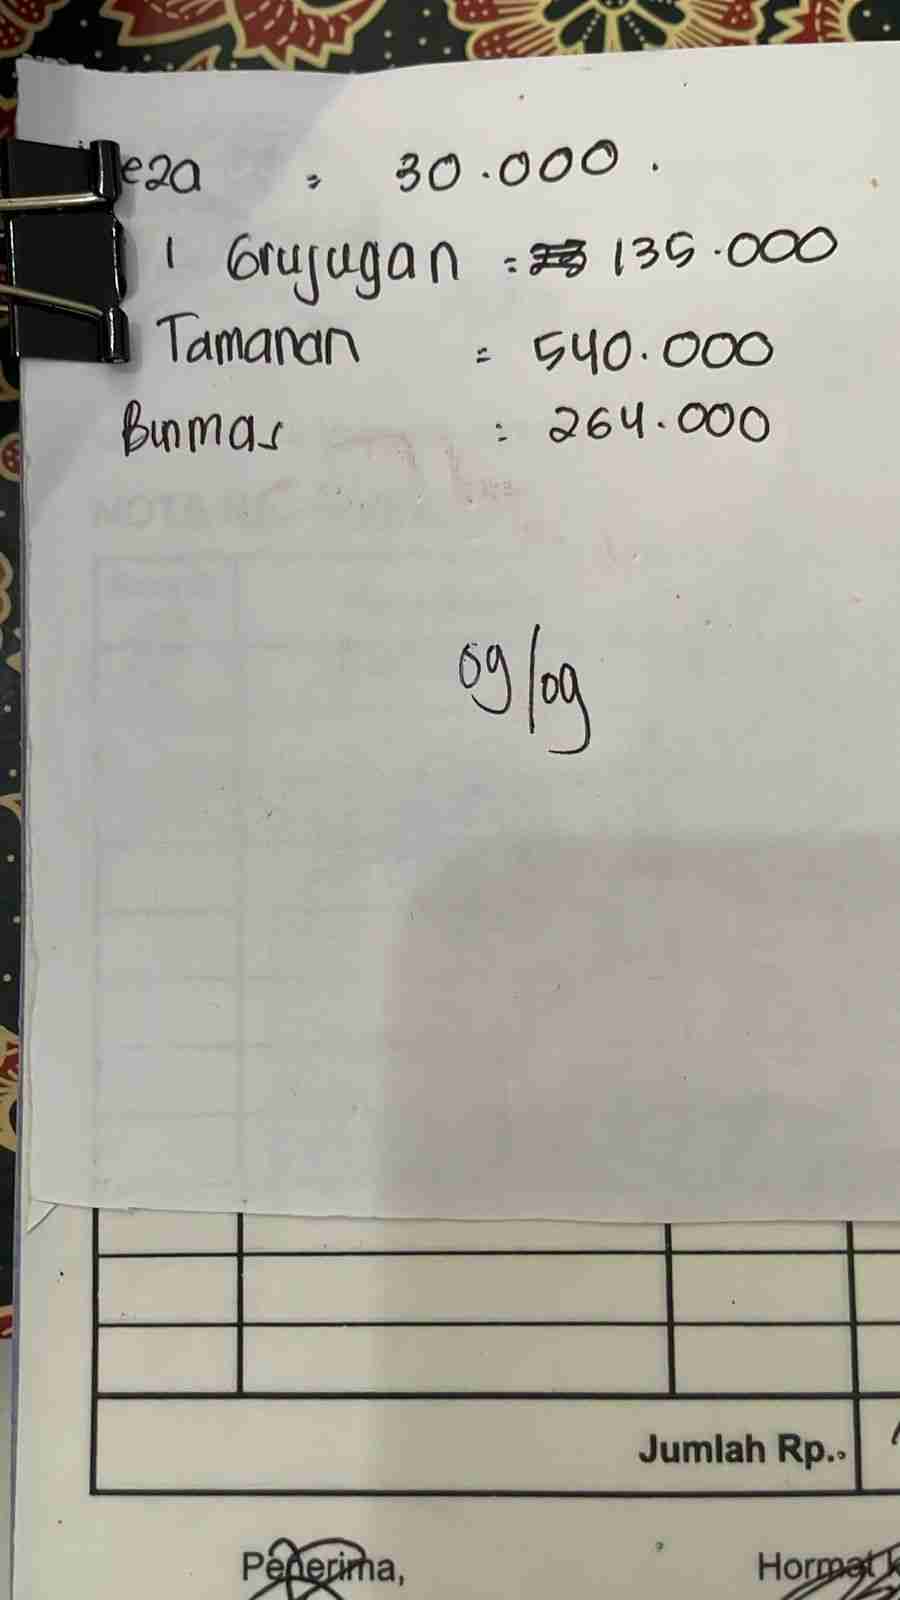 eza = 30.000.
1 Grujugan = 135.000
Tamanan = 540.000
Binmas : 264.000
NOTA NO.
09/09
Jumlah Rp..
Penerima, Hormat k